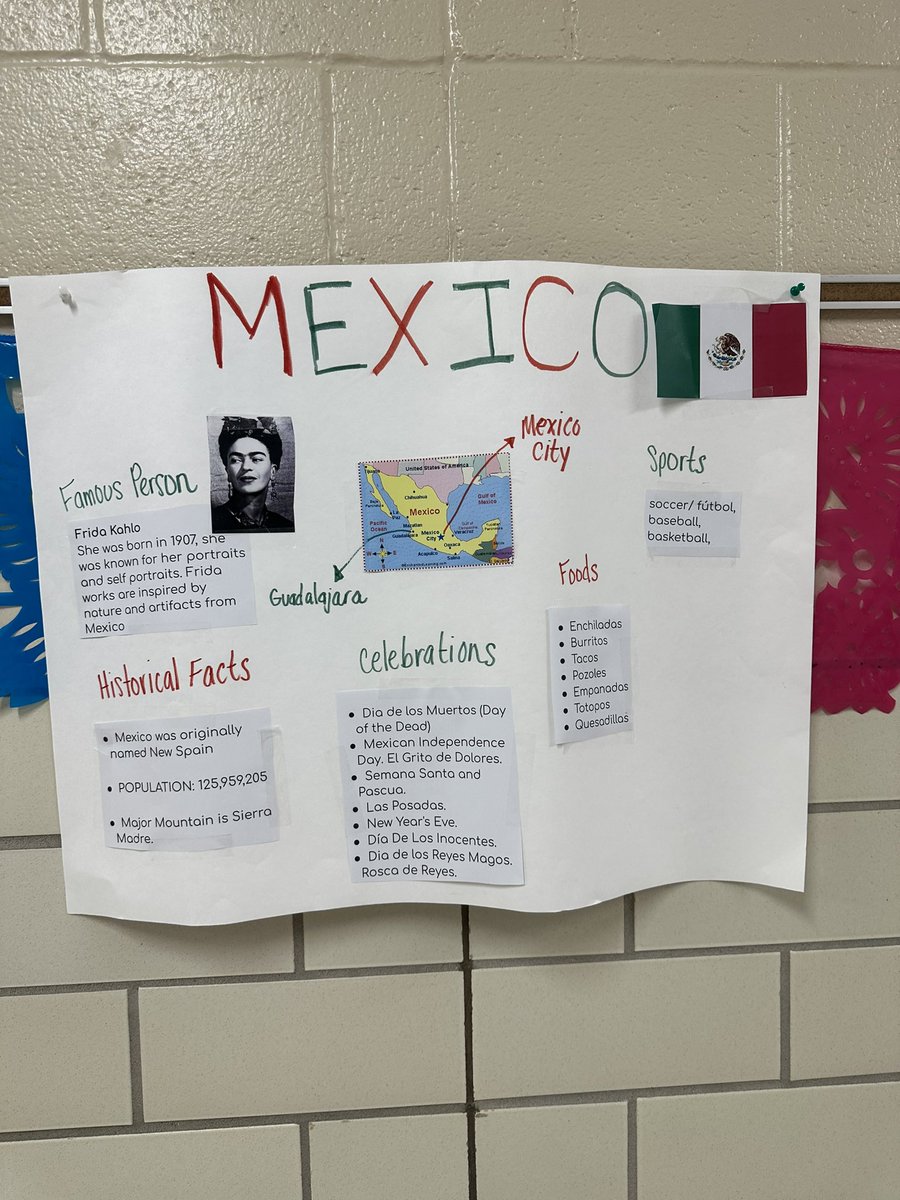 MEXICO
Famous Person
Frida Kahlo
She was born in 1907, she
was known for her portraits
and self portraits. Frida
works are inspired by
nature and artifacts from
Mexico
Historical Facts
• Mexico was originally
named New Spain
• POPULATION: 125,959,205
• Major Mountain is Sierra
Madre.
Mexico
City
United States of America
Chihuahua
Gulf of
Mexico
Mexico
La
Paz
Pacific
Ocean
Mazatlan
Guadalajara
Mexico
City
Veracruz
Oaxaca
Acapulco
Salina
N
W
E
S
Guadalajara
Celebrations
• Dia de los Muertos (Day
of the Dead)
• Mexican Independence
Day. El Grito de Dolores.
• Semana Santa and
Pascua.
• Las Posadas.
• New Year's Eve.
• Día De Los Inocentes.
• Dia de los Reyes Magos.
Rosca de Reyes.
Foods
• Enchiladas
• Burritos
• Tacos
• Pozoles
• Empanadas
• Totopos
• Quesadillas
Sports
soccer/ fútbol,
baseball,
basketball,